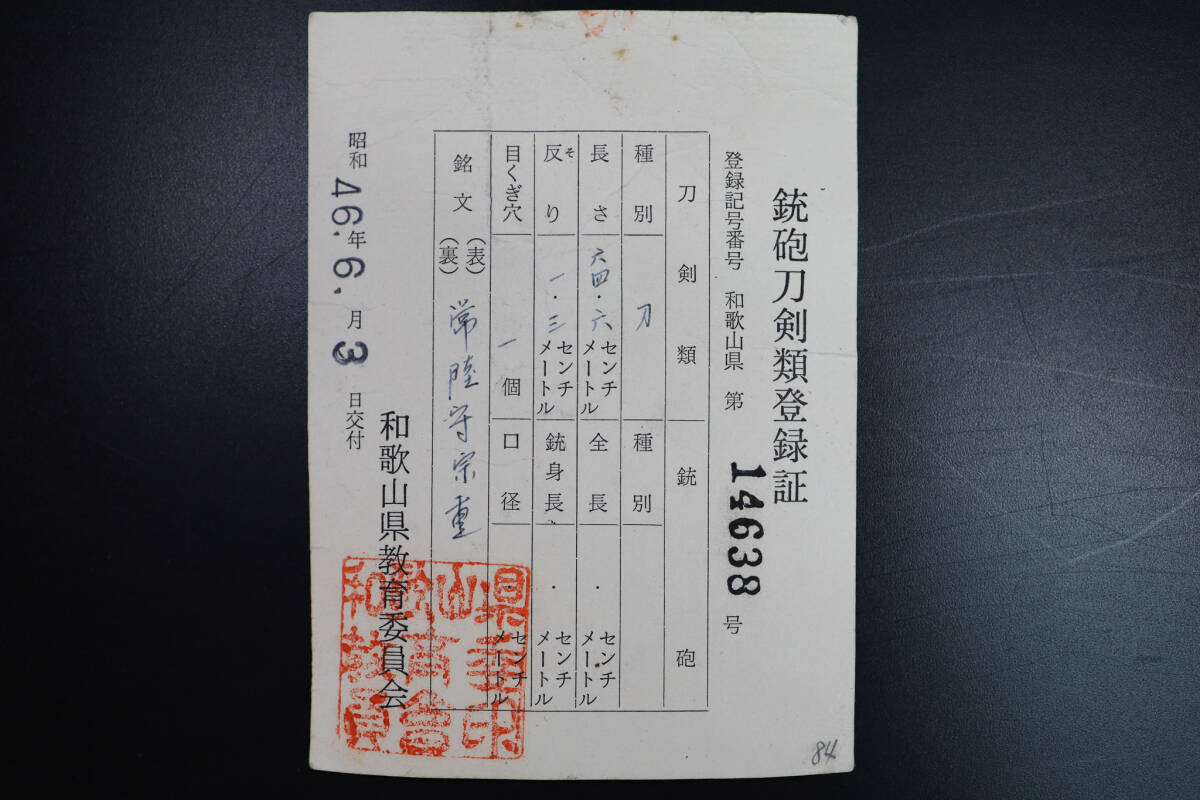 銃砲刀剣類登録証
登録記号番号 和歌山県 第 14638 号
刀剣類 銃砲
種別 刀 種別
長さ 六四・六 センチメートル 全長 ・ センチメートル
反り そ 一・三 センチメートル 銃身長 ・ センチメートル
目くぎ穴 一 個 口径 ・ センチメートル
銘文 (表) 常陸守宗重
(裏)
和歌山県教育委員会
昭和 46.年 6.月 3 日交付
84